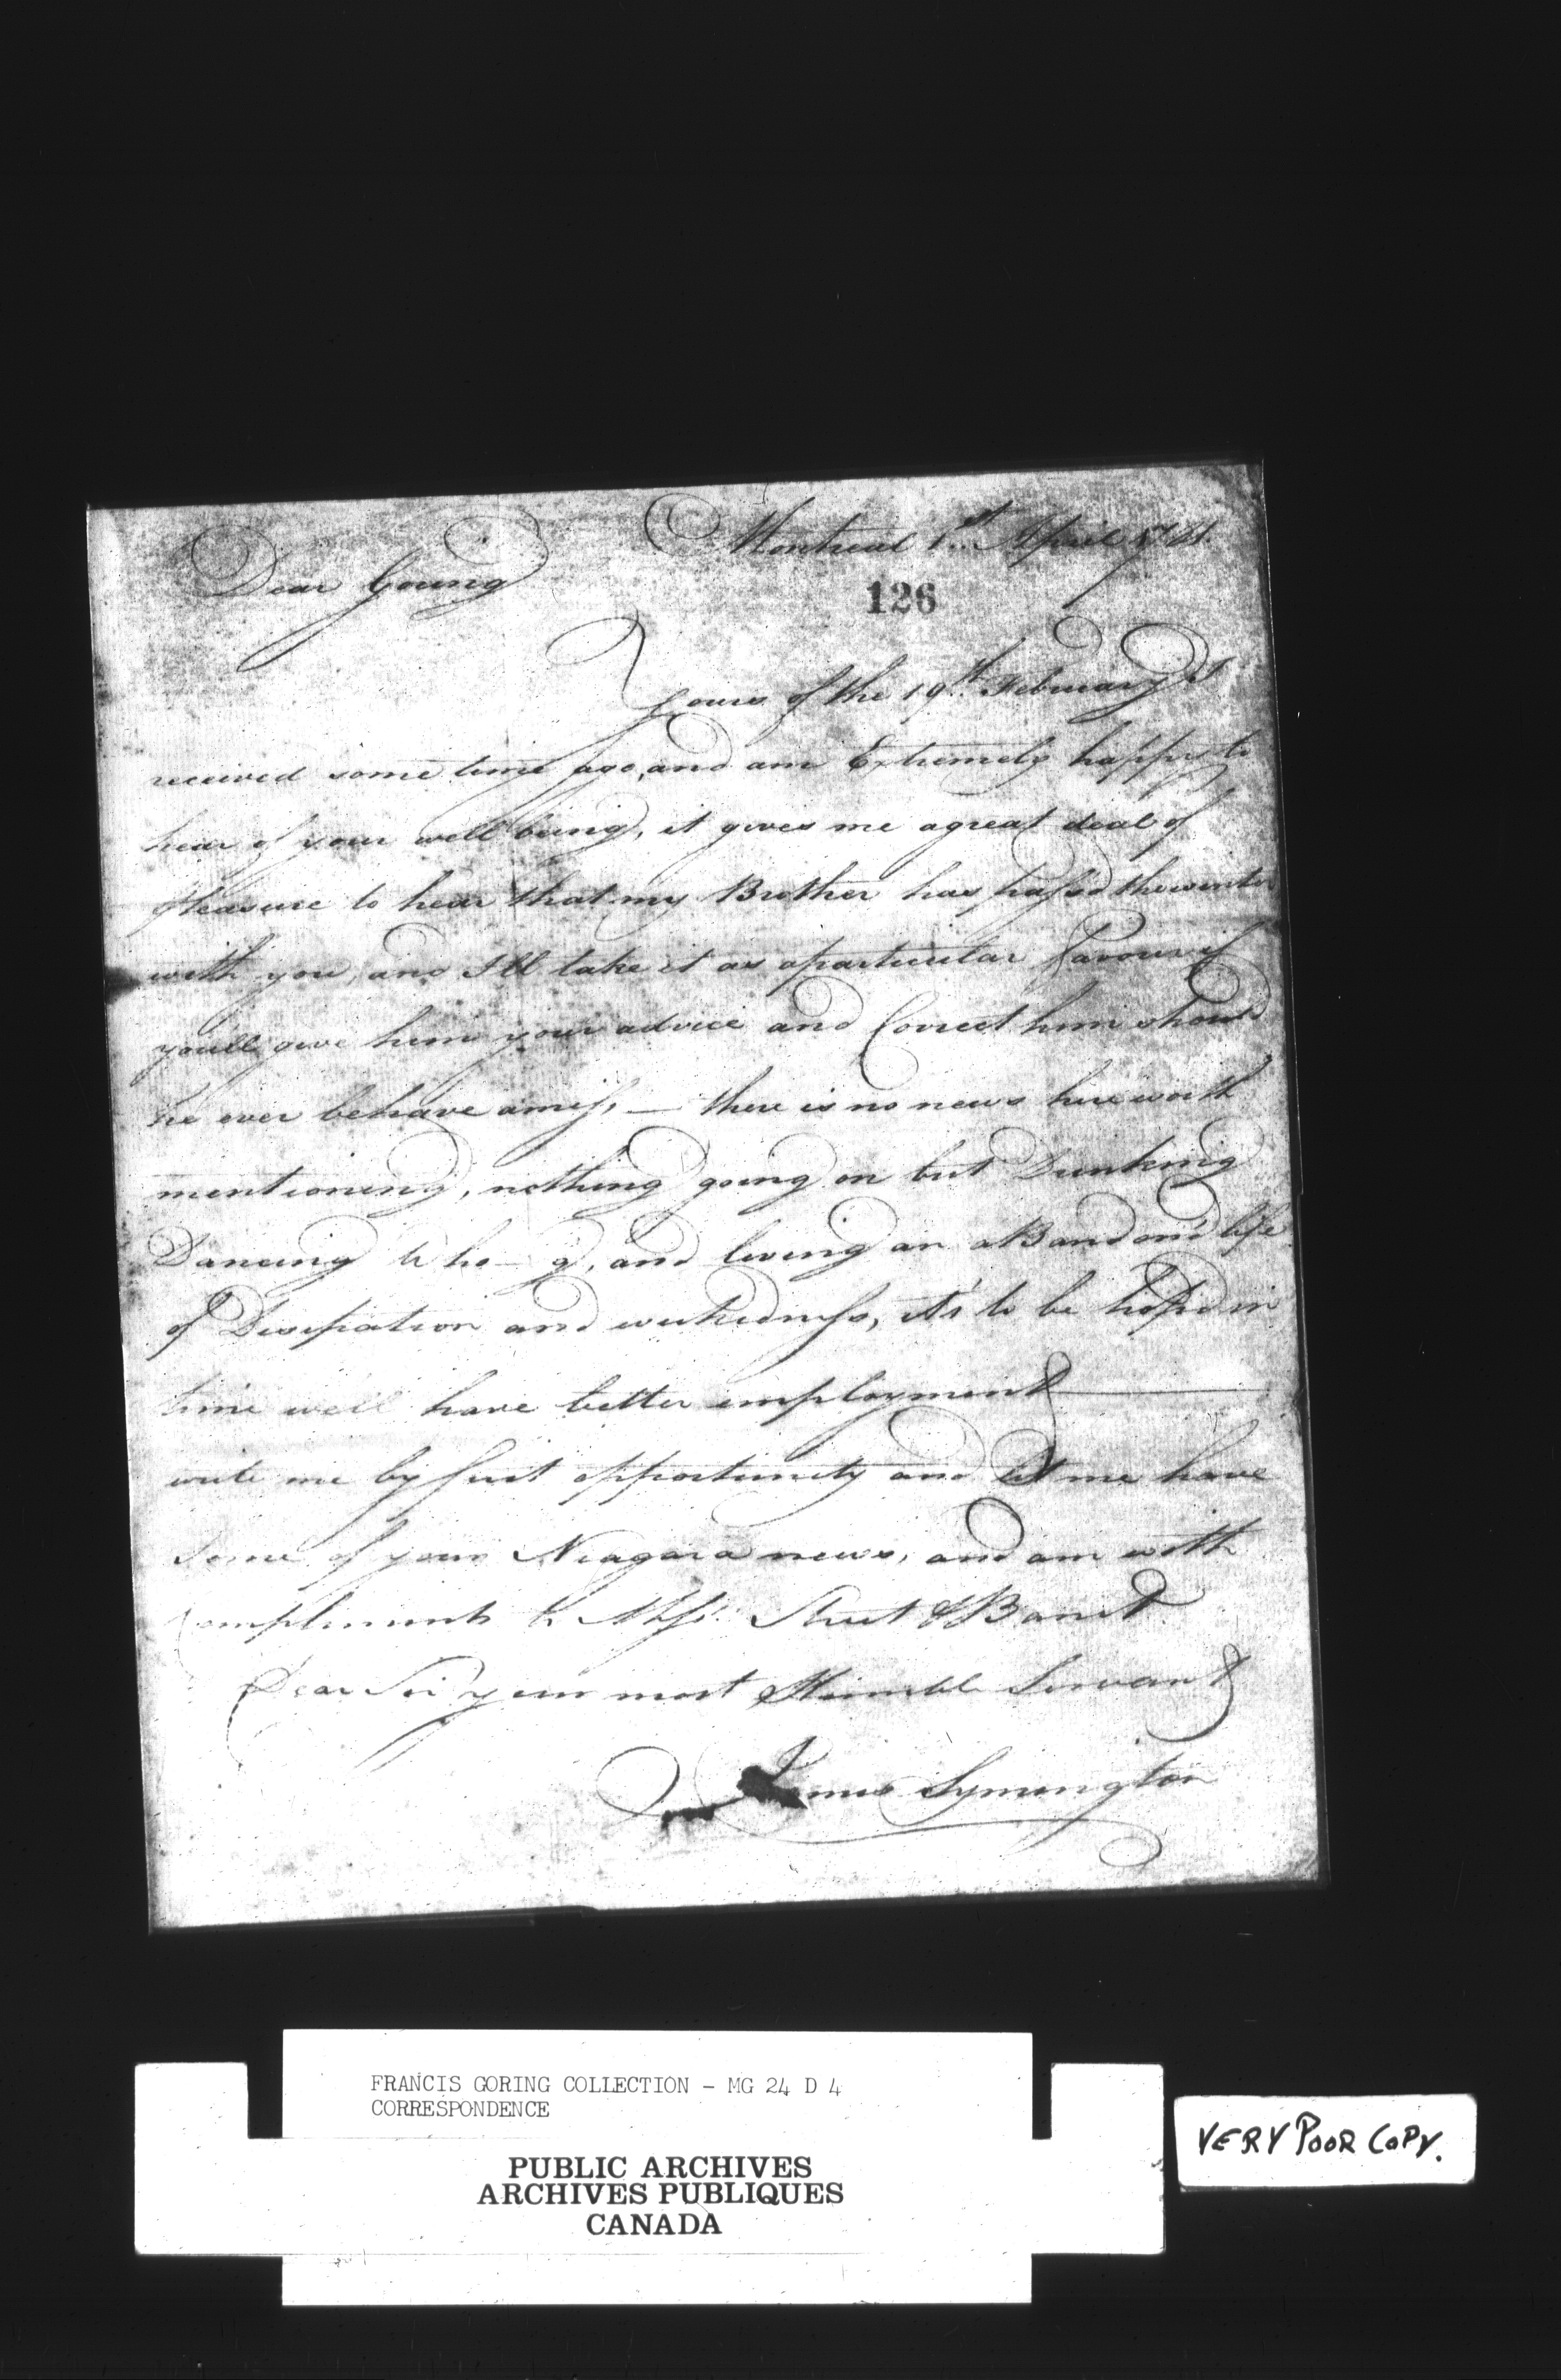 Montreal 1st April 1781.
Dear Goring
126
Yours of the 19th February I
received some time ago, and am Extremely happy to
hear of your well being, it gives me a great deal of
Pleasure to hear that my Brother has passed the winter
with you, and I'll take it as a particular favour if
youll give him your advice and Correct him should
he ever behave amiss, — there is no news here worth
mentioning, nothing going on but Drinking
Dancing Who—g, and living an aBandon'd life
of Dissipation and wickedness, it's to be hoped in
time we'll have better employment
write me by first opportunity and let me have
some of your Niagara news, and am with
Compliments to Messrs. Street &
Dear Sir your most Humble Servant
James Symington
FRANCIS GORING COLLECTION - MG 24 D 4
CORRESPONDENCE
PUBLIC ARCHIVES
ARCHIVES PUBLIQUES
CANADA
VERY POOR COPY.